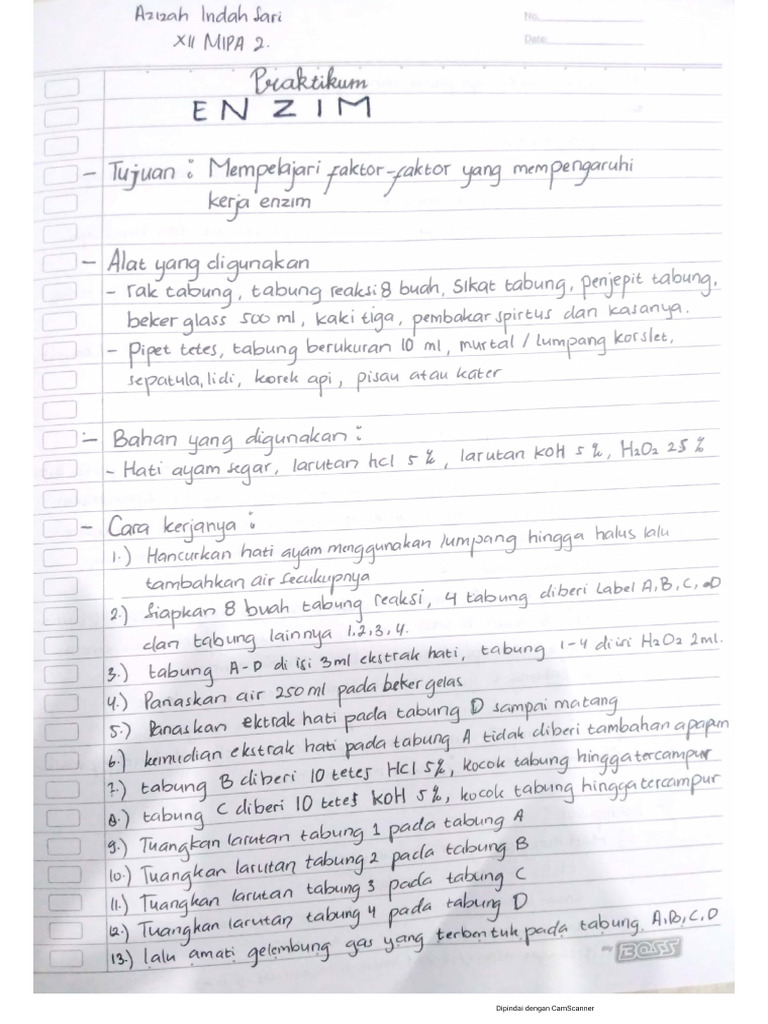 Azizah Indah Sari
No.
XII MIPA 2.
Date:
Praktikum
ENZIM
- Tujuan : Mempelajari faktor-faktor yang mempengaruhi
kerja enzim
- Alat yang digunakan
- rak tabung, tabung reaksi 8 buah, Sikat tabung, penjepit tabung,
beker glass 500 ml, kaki tiga, pembakar spirtus dan kasanya.
- Pipet tetes, tabung berukuran 10 ml, murtal / lumpang korslet,
sepatula, lidi, korek api, pisau atau kater
- Bahan yang digunakan :
- Hati ayam segar, larutan hcl 5 %, larutan KOH 5 %, H2O2 25 %
- Cara kerjanya :
1.) Hancurkan hati ayam menggunakan lumpang hingga halus lalu
tambahkan air secukupnya
2.) Siapkan 8 buah tabung reaksi, 4 tabung diberi Label A, B, C, D
dan tabung lainnya 1, 2, 3, 4.
3.) tabung A-D di isi 3 ml ekstrak hati, tabung 1-4 diisi H2O2 2ml.
4.) Panaskan air 250 ml pada beker gelas
5.) Panaskan ektrak hati pada tabung D sampai matang
6.) kemudian ekstrak hati pada tabung A tidak diberi tambahan apapun
7.) tabung B diberi 10 tetes HCl 5%, kocok tabung hingga tercampur
8.) tabung C diberi 10 tetes KOH 5%, kocok tabung hingga tercampur
9.) Tuangkan larutan tabung 1 pada tabung A
10.) Tuangkan larutan tabung 2 pada tabung B
11.) Tuangkan larutan tabung 3 pada tabung C
12.) Tuangkan larutan tabung 4 pada tabung D
13.) lalu amati gelembung gas yang terbentuk pada tabung A, B, C, D
BOSS
Dipindai dengan CamScanner